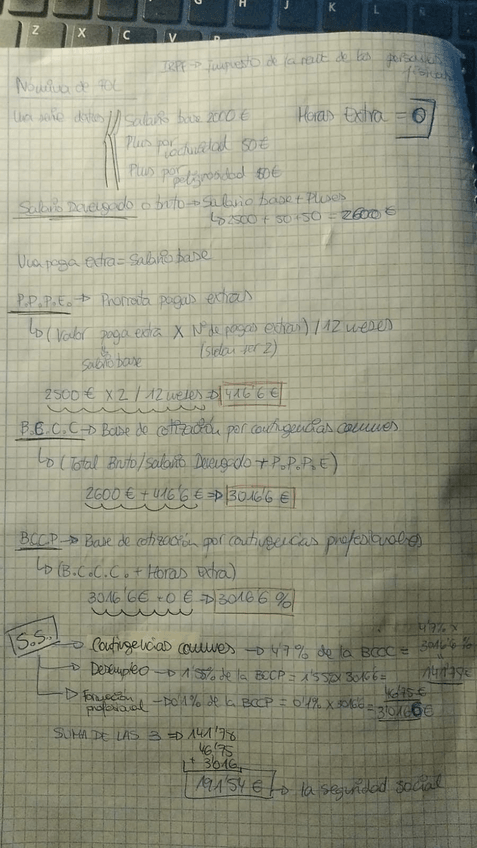 H J K L
Z X C V
IRPF → Impuesto de la rent de las personas físicas
Nómina de FOL
Una serie datos Salario base 2000 € Horas Extra = 0
Plus por nocturnidad 50€
Plus por peligrosidad 50€
Salario Devengado o bruto → Salario base + Pluses
↳ 2500 + 50 + 50 = 2600 €
Una paga extra = Salario base
P.P.P.E. → Prorrata pagas extras
↳ (Valor paga extra X Nº de pagas extras) / 12 meses
salario base (suelen ser 2)
2500 € x 2 / 12 meses ⇒ 416'6 €
B.C.C.C → Base de cotización por contingencias comunes
↳ (Total Bruto/Salario Devengado + P.P.P.E)
2600 € + 416'6 € ⇒ 3016'6 €
BCCP → Base de cotización por contingencias profesionales
↳ (B.C.C.C. + Horas Extra)
3016'6€ + 0 € ⇒ 3016'6 %
4'7% x
S.S. → Contingencias comunes → 4'7% de la BCCC = 3016'6 %
141'78€
→ Desempleo → 1'55% de la BCCP = 1'55% x 3016'6 = 46'75 €
→ Formación profesional → 0'1% de la BCCP = 0'1% x 3016'6 = 3'0166€
SUMA DE LAS 3 ⇒ 141'78
46'75
+ 3'016
191'54 € → la seguridad social